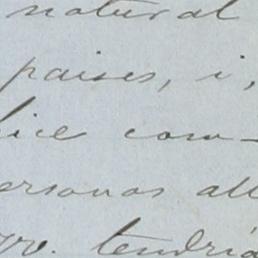 natural
paises, i,
lice com-
personas all
vv. tendria